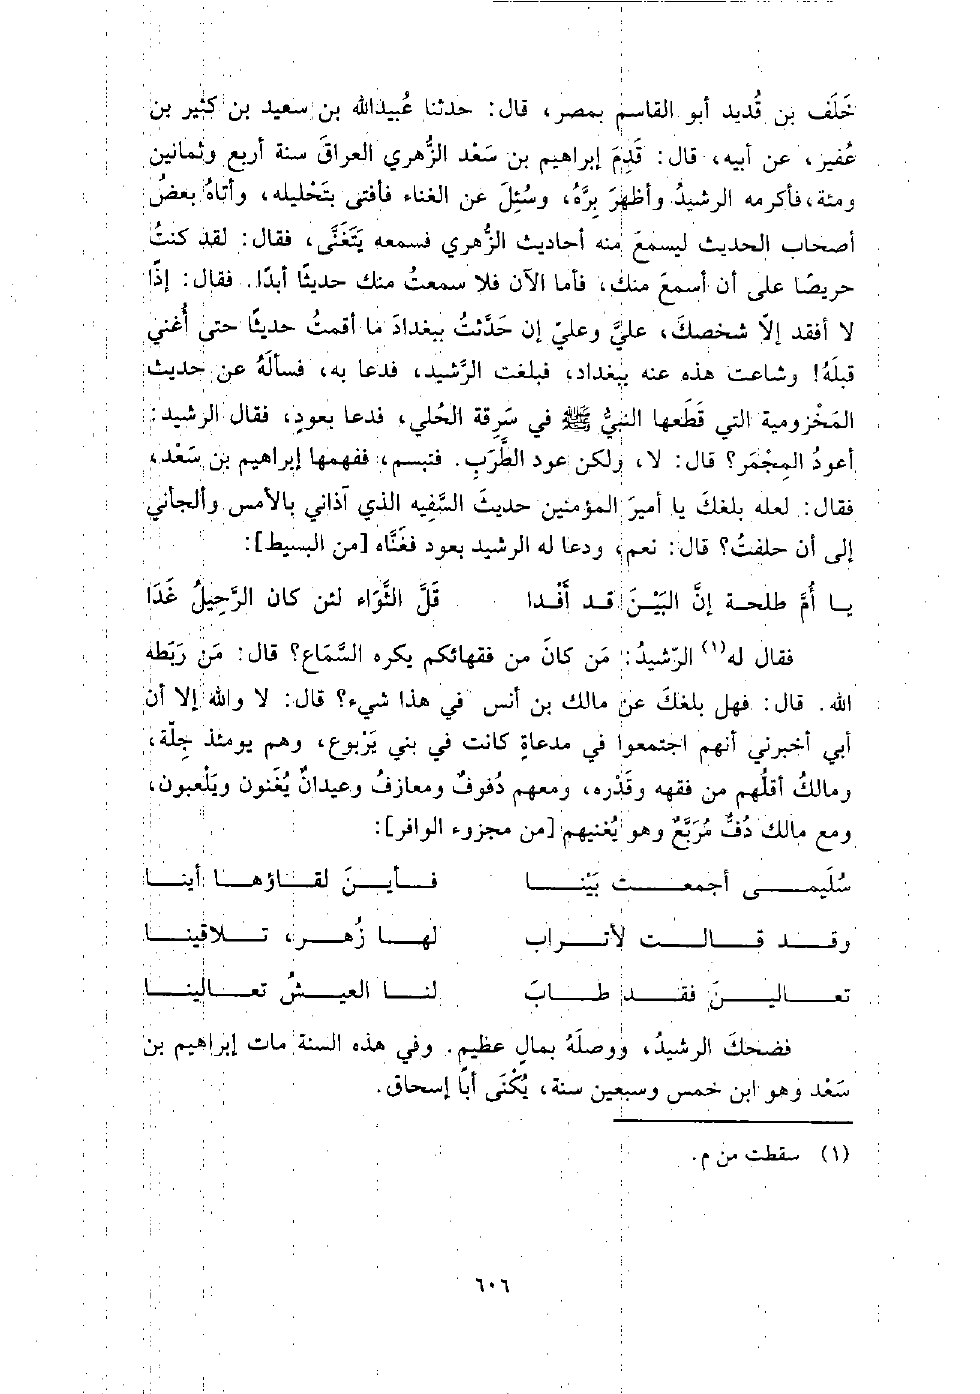 خَلَف بن قُديد أبو القاسم بمصر، قال: حدثنا عُبيدالله بن سعيد بن كثير بن
عُفير، عن أبيه، قال: قَدِمَ إبراهيم بن سَعْد الزُّهري العراقَ سنة أربع وثمانين
ومئة، فأكرمه الرشيدُ وأظهرَ بِرَّهُ، وسُئِلَ عن الغناء فأفتى بتَحْليله، وأتاهُ بعضُ
أصحاب الحديث ليسمعَ منه أحاديث الزُّهري فسمعه يَتَغَنَّى، فقال: لقد كنتُ
حريصًا على أن أسمعَ منك، فأما الآن فلا سمعتُ منك حديثًا أبدًا. فقال: إذًا
لا أفقد إلّا شخصكَ، عليَّ وعليّ إن حَدَّثتُ ببغدادَ ما أقمتُ حديثًا حتى أُغني
قبلَهُ! وشاعت هذه عنه ببغداد، فبلغت الرَّشيد، فدعا به، فسألَهُ عن حديث
المَخْزومية التي قَطَعها النبيُّ ﷺ في سَرِقة الحُلي، فدعا بعودٍ، فقال الرشيد:
أعودُ المِجْمَر؟ قال: لا، ولكن عود الطَّرَبِ. فتبسم، ففهمها إبراهيم بن سَعْد،
فقال: لعله بلغكَ يا أميرَ المؤمنين حديثَ السَّفِيه الذي آذاني بالأمس وألجأني
إلى أن حلفتُ؟ قال: نعم، ودعا له الرشيد بعود فغَنَّاه [من البسيط]:
يا أُمَّ طلحة إنَّ البَيْنَ قد أَفْدا قَلَّ الثَّوَاء لئن كان الرَّحِيلُ غَدَا
فقال له(١) الرّشيدُ: مَن كانَ من فقهائكم يكره السَّماع؟ قال: مَن رَبَطه
الله. قال: فهل بلغكَ عن مالك بن أنس في هذا شيء؟ قال: لا والله إلا أن
أبي أخبرني أنهم اجتمعوا في مدعاةٍ كانت في بني يَرْبوع، وهم يومئذ جِلّة،
ومالكُ أقلُّهم من فقهه وقَدْره، ومعهم دُفوفٌ ومعازفُ وعيدانٌ يُغَنون ويَلْعبون،
ومع مالك دُفٌّ مُرَبَّعٌ وهو يُغنيهم [من مجزوء الوافر]:
سُلَيمى أجمعت بَيْنا فأينَ لقاؤها أينا
وقد قالت لأتراب لها زُهر، تلاقينا
تعالينَ فقد طابَ لنا العيشُ تعالينا
فضحكَ الرشيدُ، ووصلَهُ بمالٍ عظيم. وفي هذه السنة مات إبراهيم بن
سَعْد وهو ابن خمس وسبعين سنة، يُكْنَى أبًا إسحاق.
(١) سقطت من م.
٦٠٦